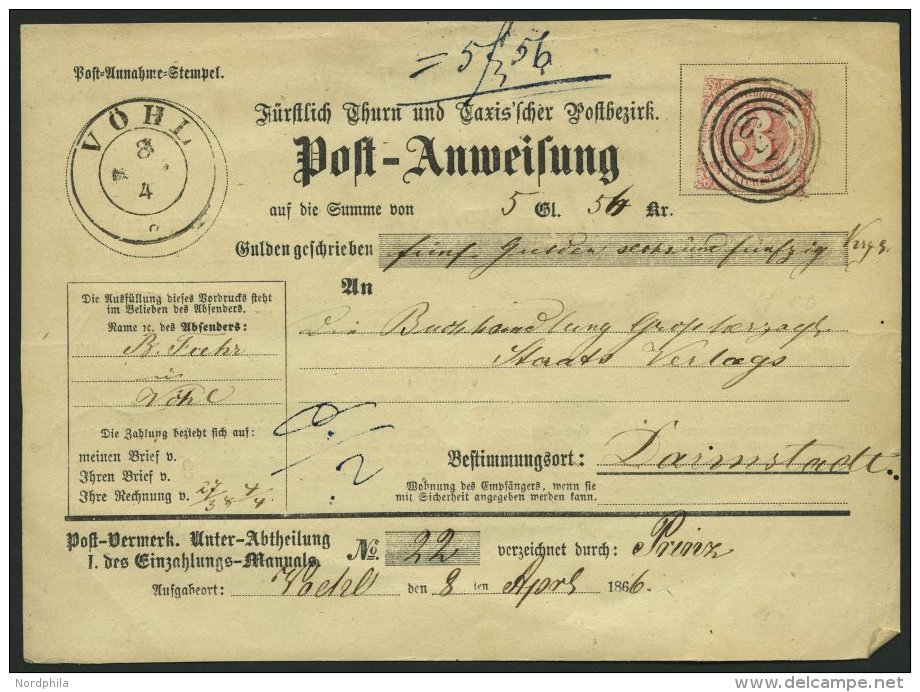 = 5/3 56
Post-Annahme-Stempel.
VÖHL
8
4
Fürstlich Thurn und Taxis'scher Postbezirk.
Post-Anweisung
auf die Summe von 5 Gl. 54 Kr.
Gulden geschrieben fünf Gulden und fünfzig
3
An
Die Ausfüllung dieses Vordrucks steht
im Belieben des Absenders.
Name ꝛc. des Absenders:
Vöhl
Die Buchhandlung Großherzogl.
Staats Verlags
Die Zahlung bezieht sich auf:
meinen Brief v.
Ihren Brief v.
Ihre Rechnung v. 27/3 & 4/4.
Bestimmungsort: Darmstadt.
Wohnung des Empfängers, wenn sie
mit Sicherheit angegeben werden kann.
Post-Vermerk. Unter-Abtheilung
I. des Einzahlungs-Manuals.
No. 22 verzeichnet durch: Prinz
Aufgabeort: Voehl den 8 ten April 1866.
Nordphila
www.delcampe.net